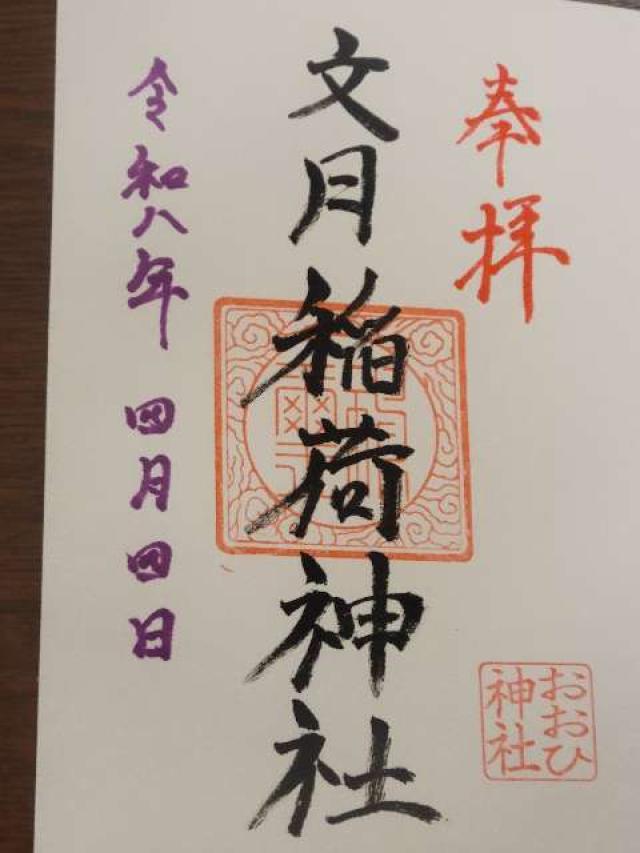 奉拝
文月稲荷神社
令和八年 四月四日
おおひ
神社